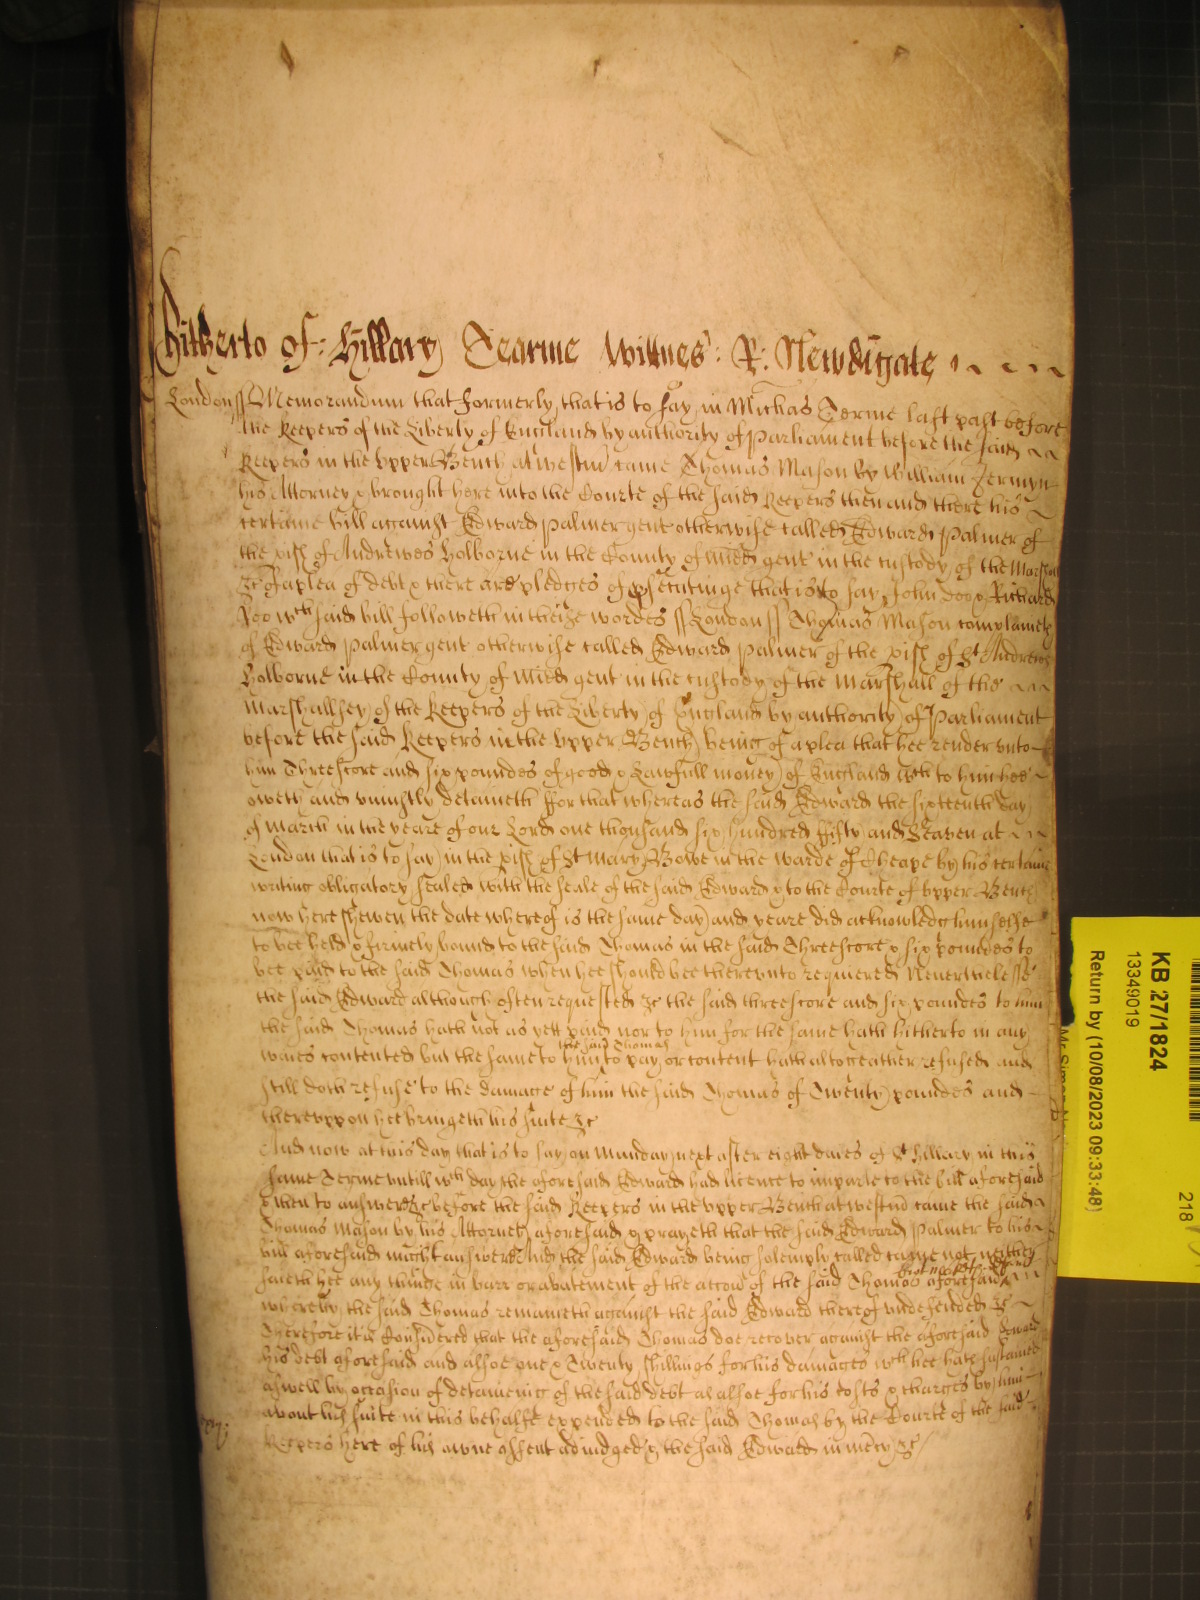 hitherto of: Hillary Tearme Wittnes: R: Newdigate
London ss Memorandum that formerly that is to say in Michas Terme last past before
the Keepers of the Liberty of England by authority of Parliament before the said
Keepers in the upper Bench at westm̄ came Thomas Mason by William Jermyn
his Attorney & brought here into the Courte of the said Keepers then and there his
certaine bill against Edward Palmer gent otherwise called Edward Palmer of
the pish of Andrewes Holborne in the County of Midd gent in the custody of the Marshall
&c of a plea of debt & there are pledges of psecutinge that is to say John Doo & Richard
Roo wch said bill followeth in theise wordes ss London ss Thomas Mason complaineth
of Edward Palmer gent otherwise called Edward Palmer of the pish of St Andrewes
Holborne in the County of Midd gent in the custody of the Marshall of the
Marshallsey of the Keepers of the Liberty of England by authority of Parliament
before the said Keepers in the upper Bench being of a plea that hee render unto
him Threescore and six poundes of good & Lawfull money of England wch to him hee
oweth and uniustly detaineth ffor that whereas the said Edward the sixteenth day
of March in the yeare of our Lord one thousand six hundred fifty and Seaven at
London that is to say in the pish of St Mary Bowe in the warde of Cheape by his certaine
writing obligatory sealed with the seale of the said Edward & to the Courte of upper Bench
now here shewen the date whereof is the same day and yeare did acknowledg himselfe
to bee held & firmely bound to the said Thomas in the said Threescore & six poundes to
bee paid to the said Thomas when hee should bee thereunto requiered Neverthelesse
the said Edward although often requested &c the said threescore and six poundes to him
the said Thomas hath not as yett paid nor to him for the same hath hitherto in any
the said Thomas
waies contented but the same to him to pay or content hath altogeather refused and
still doth refuse to the damage of him the said Thomas of Twenty poundes and
thereuppon hee bringeth his suite &c
And now at this day that is to say on Munday next after eight daies of St Hillary in this
same Terme untill wch day the aforesaid Edward had licence to imparle to the bill aforesaid
& then to answere &c before the said Keepers in the upper Bench at westm̄ came the said
Thomas Mason by his Attorney aforesaid & prayeth that the said Edward Palmer to his
bill aforesaid might answere And the said Edward being solemply called came not neither
saieth hee any thinge in barr or abatement of the accon of the said Thomas aforesaid
whereby the said Thomas remaineth against the said Edward thereof undefended &c
Therefore it is Considered that the aforesaid Thomas doe recover against the aforesaid Edward
his debt aforesaid and alsoe one & Twenty shillings for his damages wch hee hath sustained
aswell by occasion of detaineing of the said debt as alsoe for his costs & charges by him
about his suite in this behalfe expended to the said Thomas by the Courte of the said
Keepers here of his owne assent adiudged & the said Edward in mercy &c
KB 27/1824
13349019
Return by (10/08/2023 09:33:48)
218